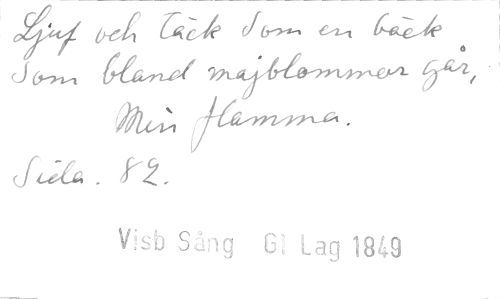 Ljuf och täck som en bäck
som bland majblommor går,
Min flamma.
Sida. 82.
Visb Sång Gl Lag 1849